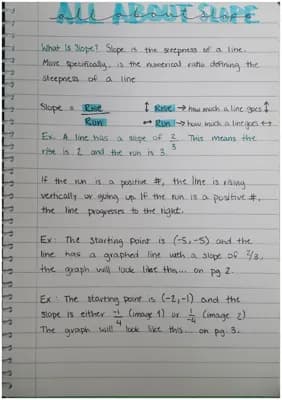 ALL ABOUT SLOPE
What is Slope? Slope is the steepness of a line.
More specifically, is the numerical ratio defining the
steepness of a line
Slope = Rise ↕ Rise → how much a line goes ↕
Run ↔ Run → how much a line goes ↔
Ex: A line has a slope of 2/3. This means the
rise is 2 and the run is 3.
If the run is a positive #, the line is rising
vertically or going up. If the run is a positive #,
the line progresses to the right.
Ex: The starting point is (-5,-5) and the
line has a graphed line with a slope of 2/3,
the graph will look like this... on pg 2.
Ex: The starting point is (-2,-1) and the
slope is either -1/4 (image 1) or 1/-4 (image 2)
The graph will look like this... on pg. 3.